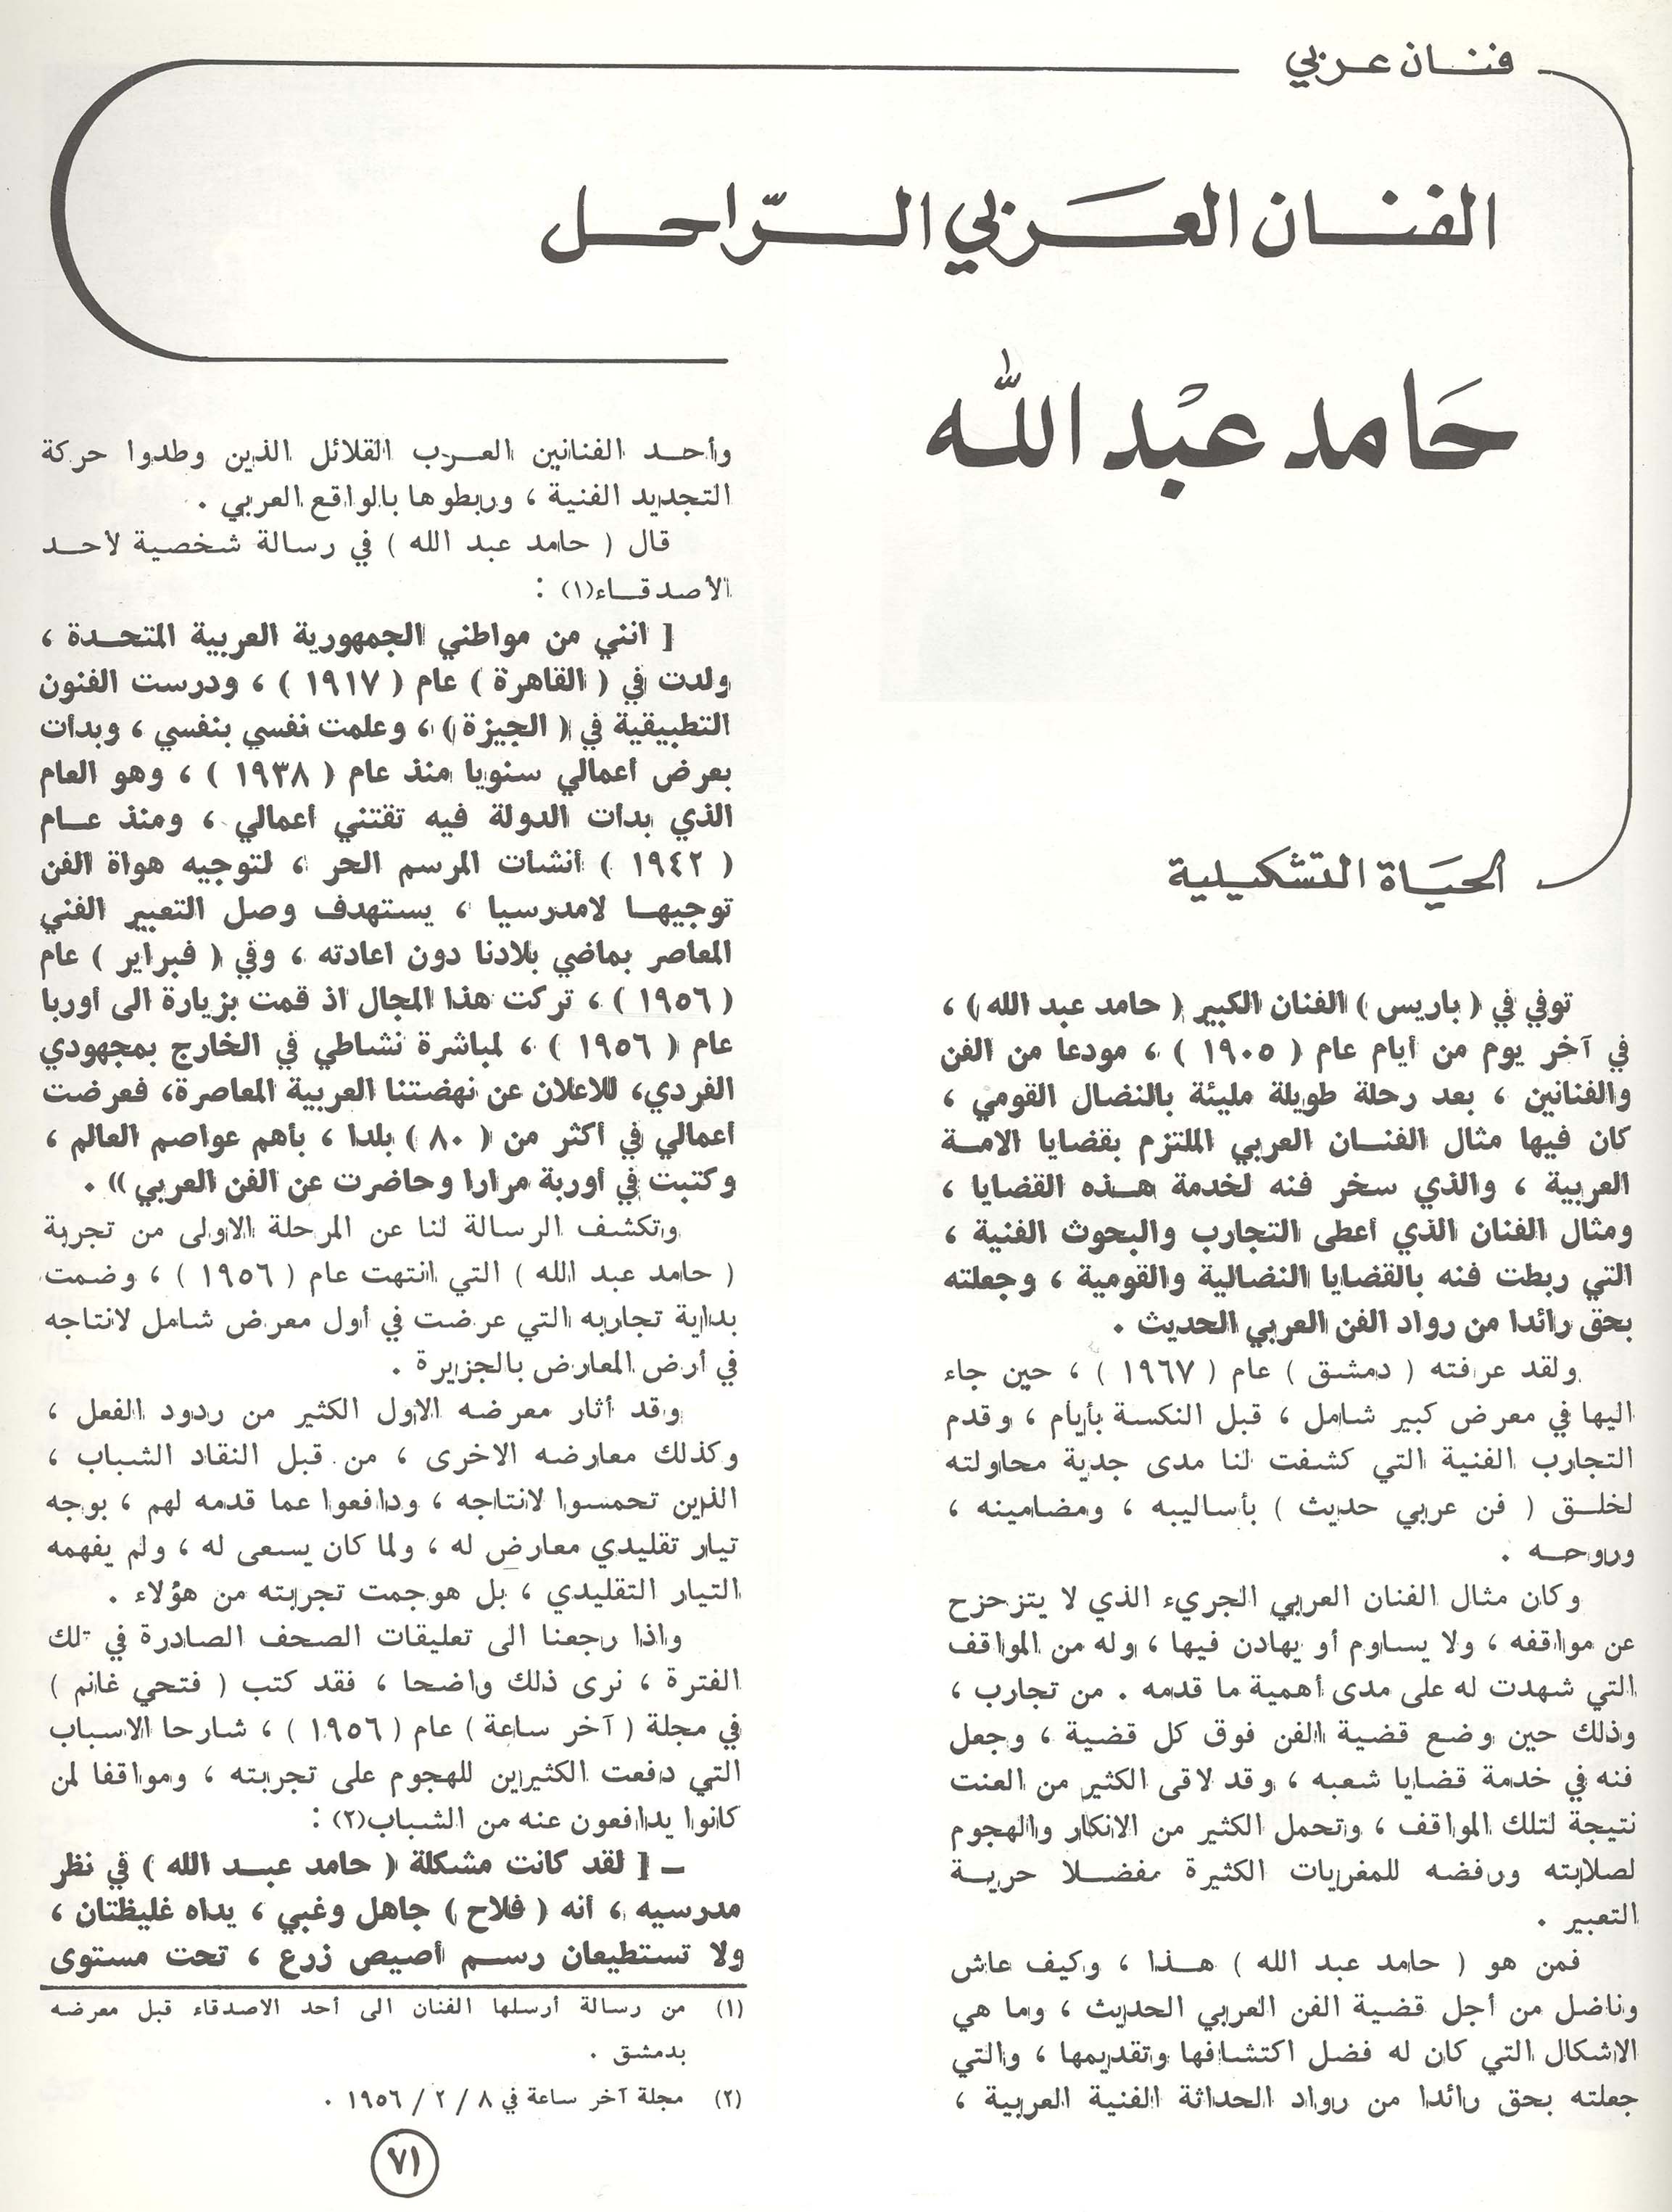 فنان عربي
الفنان العربي الرّاحل
حَامد عبْد اللّه
الحيَاة التشكيلية
توفي في ( باريس ) الفنان الكبير ( حامد عبد الله ) ،
في آخر يوم من أيام عام ( ١٩٠٥ ) ، مودعا من الفن
والفنانين ، بعد رحلة طويلة مليئة بالنضال القومي ،
كان فيها مثال الفنان العربي الملتزم بقضايا الامة
العربية ، والذي سخر فنه لخدمة هذه القضايا ،
ومثال الفنان الذي أعطى التجارب والبحوث الفنية ،
التي ربطت فنه بالقضايا النضالية والقومية ، وجعلته
بحق رائدا من رواد الفن العربي الحديث .
ولقد عرفته ( دمشق ) عام ( ١٩٦٧ ) ، حين جاء
اليها في معرض كبير شامل ، قبل النكسة بأيام ، وقدم
التجارب الفنية التي كشفت لنا مدى جدية محاولته
لخلق ( فن عربي حديث ) بأساليبه ، ومضامينه ،
وروحه .
وكان مثال الفنان العربي الجريء الذي لا يتزحزح
عن مواقفه ، ولا يساوم أو يهادن فيها ، وله من المواقف
التي شهدت له على مدى أهمية ما قدمه . من تجارب ،
وذلك حين وضع قضية الفن فوق كل قضية ، وجعل
فنه في خدمة قضايا شعبه ، وقد لاقى الكثير من العنت
نتيجة لتلك المواقف ، وتحمل الكثير من الانكار والهجوم
لصلابته ورفضه للمغريات الكثيرة مفضلا حرية
التعبير .
فمن هو ( حامد عبد الله ) هذا ، وكيف عاش
وناضل من أجل قضية الفن العربي الحديث ، وما هي
الاشكال التي كان له فضل اكتشافها وتقديمها ، والتي
جعلته بحق رائدا من رواد الحداثة الفنية العربية ،
وأحد الفنانين العرب القلائل الذين وطدوا حركة
التجديد الفنية ، وربطوها بالواقع العربي .
قال ( حامد عبد الله ) في رسالة شخصية لاحد
الأصدقاء(١) :
[ انني من مواطني الجمهورية العربية المتحدة ،
ولدت في ( القاهرة ) عام ( ١٩١٧ ) ، ودرست الفنون
التطبيقية في ( الجيزة ) ، وعلمت نفسي بنفسي ، وبدأت
بعرض أعمالي سنويا منذ عام ( ١٩٣٨ ) ، وهو العام
الذي بدأت الدولة فيه تقتني أعمالي ، ومنذ عام
( ١٩٤٢ ) أنشأت المرسم الحر ، لتوجيه هواة الفن
توجيها لامدرسيا ، يستهدف وصل التعبير الفني
المعاصر بماضي بلادنا دون اعادته ، وفي ( فبراير ) عام
( ١٩٥٦ ) ، تركت هذا المجال اذ قمت بزيارة الى أوربا
عام ( ١٩٥٦ ) ، لمباشرة نشاطي في الخارج بمجهودي
الفردي، للاعلان عن نهضتنا العربية المعاصرة، فعرضت
أعمالي في أكثر من ( ٨٠ ) بلدا ، بأهم عواصم العالم ،
وكتبت في أوربة مرارا وحاضرت عن الفن العربي )) .
وتكشف الرسالة لنا عن المرحلة الاولى من تجربة
( حامد عبد الله ) التي انتهت عام ( ١٩٥٦ ) ، وضمت
بداية تجاربه التي عرضت في أول معرض شامل لانتاجه
في أرض المعارض بالجزيرة .
وقد أثار معرضه الاول الكثير من ردود الفعل ،
وكذلك معارضه الاخرى ، من قبل النقاد الشباب ،
الذين تحمسوا لانتاجه ، ودافعوا عما قدمه لهم ، بوجه
تيار تقليدي معارض له ، ولما كان يسعى له ، ولم يفهمه
التيار التقليدي ، بل هوجمت تجربته من هؤلاء .
واذا رجعنا الى تعليقات الصحف الصادرة في تلك
الفترة ، نرى ذلك واضحا ، فقد كتب ( فتحي غانم )
في مجلة ( آخر ساعة ) عام ( ١٩٥٦ ) ، شارحا الاسباب
التي دفعت الكثيرين للهجوم على تجربته ، ومواقفا لمن
كانوا يدافعون عنه من الشباب(٢) :
ــ [ لقد كانت مشكلة ( حامد عبد الله ) في نظر
مدرسيه ، أنه ( فلاح ) جاهل وغبي ، يداه غليظتان ،
ولا تستطيعان رسم أصيص زرع ، تحت مستوى
(١) من رسالة أرسلها الفنان الى أحد الاصدقاء قبل معرضه
بدمشق .
(٢) مجلة آخر ساعة في ٨ / ٢ / ١٩٥٦ .
٧١